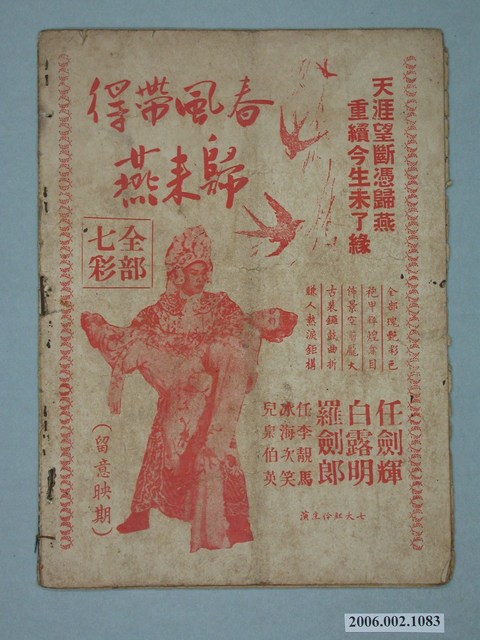 天涯望斷憑歸燕
重續今生未了緣
春風帶得
歸來燕
全部
七彩
全部濃艷彩色
袍甲輝煌奪目
佈景空前龐大
古裝鑼鼓曲折
賺人熱淚鉅構
任劍輝
白露明
羅劍郎
任冰兒
李海泉
靚次伯
馬笑英
七大紅伶主演
（留意映期）
2006.002.1083